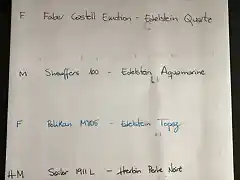 F Faber Castell Emotion - Edelstein Quartz
M Sheaffers 100 - Edelstein Aquamarine
F Pelikan M205 - Edelstein Topaz
H-M Sailor 1911 L - Herbin Perle Noire